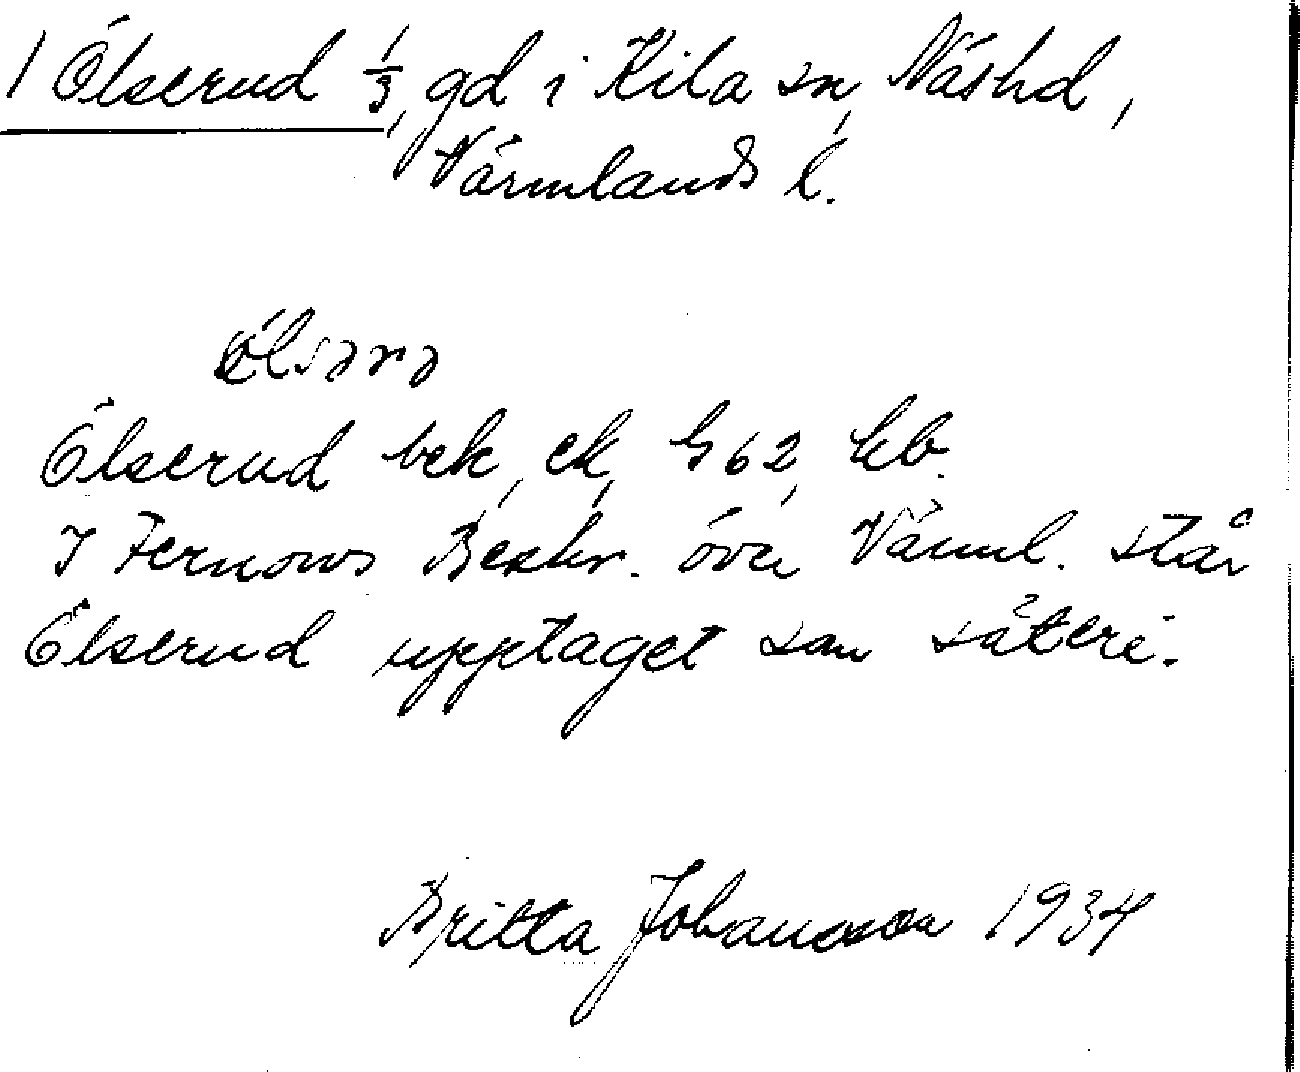 1 Ölserud 1/3, gd i Kila sn, Näs hd,
Värmlands l.
ö́lsərə
Ölserud bek, ek, G62, kb.
I Fernows Beskr. över Värml. står
Ölserud upptaget som säteri.
Britta Johansson 1934